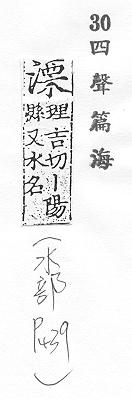 30 四聲篇海
溧 理吉切丨陽
縣又水名
(水部 P439)